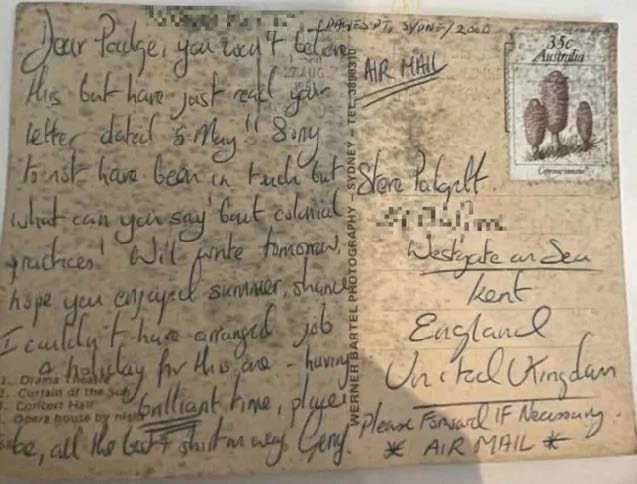 DAWES PT, SYDNEY 2000
Dear Padge, you won't believe
this but have just read your
letter dated 5 May!! Sorry
to not have been in touch but
what can you say 'bout colonial
practices! Will write tomorrow,
hope you enjoyed summer, shame
I couldn't have arranged job
a holiday for this one - having
brilliant time,
be, all the best + shirt on way. Gerry.
1. Drama Theatre
2. Curtain of the Sun
3. Concert Hall
Opera house by night
WERNER BARTEL PHOTOGRAPHY - SYDNEY - TEL.
22 AUG
AIR MAIL
35c
Australia
Coprinus comatus
Steve Padgett
Westgate on Sea
Kent
England
United Kingdom
Please Forward IF Necessary.
* AIR MAIL *